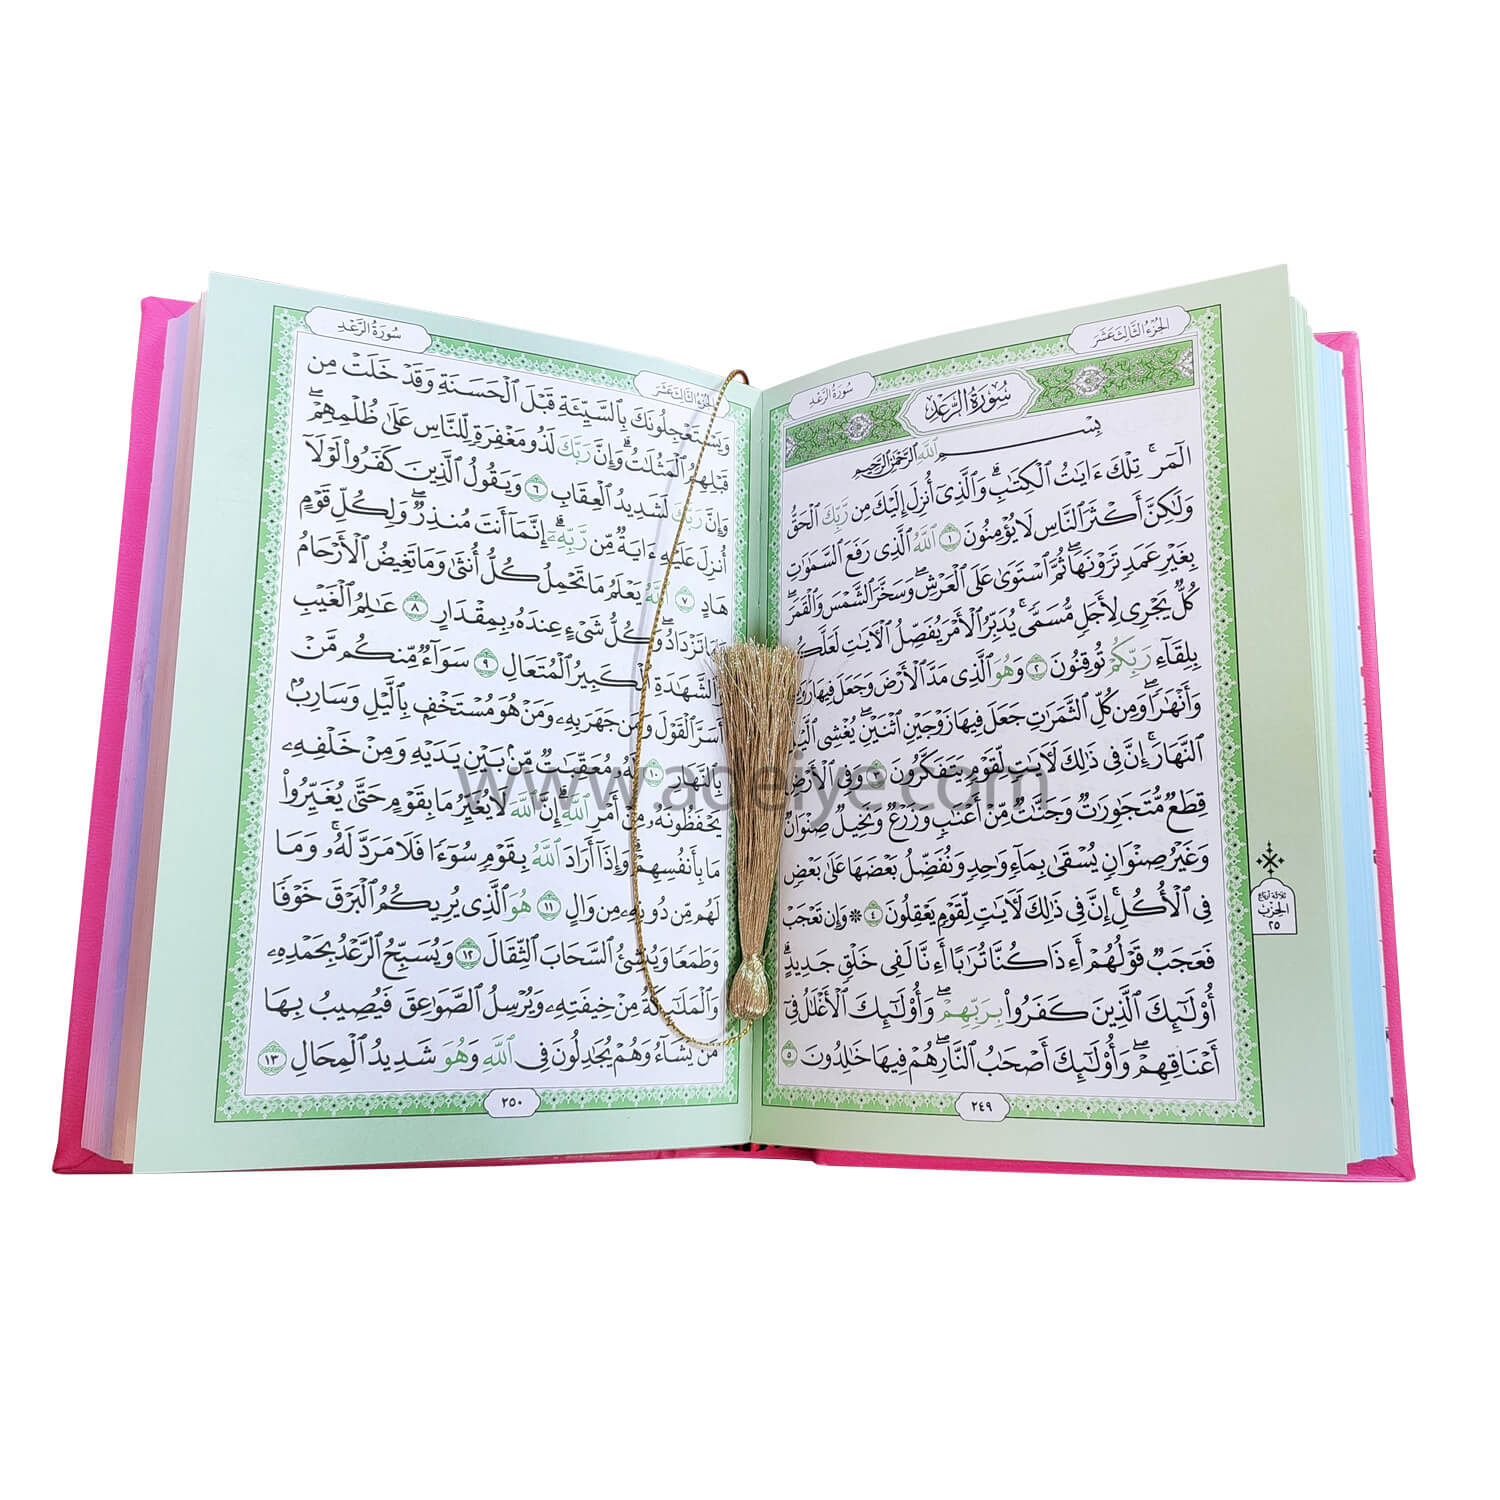 الجُزْءُ الثَّالِثَ عَشَرَ
سُورَةُ الرَّعْدِ
سُورَةُ الرَّعْدِ
بِسْمِ ٱللَّهِ ٱلرَّحْمَٰنِ ٱلرَّحِيمِ
الٓمٓرۚ تِلْكَ ءَايَٰتُ ٱلْكِتَٰبِۗ وَٱلَّذِىٓ أُنزِلَ إِلَيْكَ مِن رَّبِّكَ ٱلْحَقُّ
وَلَٰكِنَّ أَكْثَرَ ٱلنَّاسِ لَا يُؤْمِنُونَ ١ ٱللَّهُ ٱلَّذِى رَفَعَ ٱلسَّمَٰوَٰتِ
بِغَيْرِ عَمَدٍ تَرَوْنَهَاۖ ثُمَّ ٱسْتَوَىٰ عَلَى ٱلْعَرْشِۖ وَسَخَّرَ ٱلشَّمْسَ وَٱلْقَمَرَۖ
كُلٌّ يَجْرِى لِأَجَلٍ مُّسَمًّىۚ يُدَبِّرُ ٱلْأَمْرَ يُفَصِّلُ ٱلْءَايَٰتِ لَعَلَّكُم
بِلِقَآءِ رَبِّكُمْ تُوقِنُونَ ٢ وَهُوَ ٱلَّذِى مَدَّ ٱلْأَرْضَ وَجَعَلَ فِيهَا
وَأَنْهَٰرًاۖ وَمِن كُلِّ ٱلثَّمَرَٰتِ جَعَلَ فِيهَا زَوْجَيْنِ ٱثْنَيْنِۖ يُغْشِى ٱلَّيْلَ
ٱلنَّهَارَۚ إِنَّ فِى ذَٰلِكَ لَءَايَٰتٍ لِّقَوْمٍ يَتَفَكَّرُونَ ٣ وَفِى ٱلْأَرْضِ
قِطَعٌ مُّتَجَٰوِرَٰتٌ وَجَنَّٰتٌ مِّنْ أَعْنَٰبٍ وَزَرْعٌ وَنَخِيلٌ صِنْوَانٌ
وَغَيْرُ صِنْوَانٍ يُسْقَىٰ بِمَآءٍ وَٰحِدٍ وَنُفَضِّلُ بَعْضَهَا عَلَىٰ بَعْضٍ
فِى ٱلْأُكُلِۚ إِنَّ فِى ذَٰلِكَ لَءَايَٰتٍ لِّقَوْمٍ يَعْقِلُونَ ٤ ۞ وَإِن تَعْجَبْ
فَعَجَبٌ قَوْلُهُمْ أَءِذَا كُنَّا تُرَٰبًا أَءِنَّا لَفِى خَلْقٍ جَدِيدٍۗ
أُو۟لَٰٓئِكَ ٱلَّذِينَ كَفَرُوا۟ بِرَبِّهِمْۖ وَأُو۟لَٰٓئِكَ ٱلْأَغْلَٰلُ فِىٓ
أَعْنَاقِهِمْۖ وَأُو۟لَٰٓئِكَ أَصْحَٰبُ ٱلنَّارِۖ هُمْ فِيهَا خَٰلِدُونَ ٥
ثلاثة أرباع
الحزب
٢٥
٢٤٩
سُورَةُ الرَّعْدِ
الجُزْءُ الثَّالِثَ عَشَرَ
وَيَسْتَعْجِلُونَكَ بِٱلسَّيِّئَةِ قَبْلَ ٱلْحَسَنَةِ وَقَدْ خَلَتْ مِن
قَبْلِهِمُ ٱلْمَثُلَٰتُۗ وَإِنَّ رَبَّكَ لَذُو مَغْفِرَةٍ لِّلنَّاسِ عَلَىٰ ظُلْمِهِمْۖ
وَإِنَّ رَبَّكَ لَشَدِيدُ ٱلْعِقَابِ ٦ وَيَقُولُ ٱلَّذِينَ كَفَرُوا۟ لَوْلَآ
أُنزِلَ عَلَيْهِ ءَايَةٌ مِّن رَّبِّهِۦٓۗ إِنَّمَآ أَنتَ مُنذِرٌۖ وَلِكُلِّ قَوْمٍ
هَادٍ ٧ ٱللَّهُ يَعْلَمُ مَا تَحْمِلُ كُلُّ أُنثَىٰ وَمَا تَغِيضُ ٱلْأَرْحَامُ
وَمَا تَزْدَادُۖ وَكُلُّ شَىْءٍ عِندَهُۥ بِمِقْدَارٍ ٨ عَٰلِمُ ٱلْغَيْبِ
وَٱلشَّهَٰدَةِ ٱلْكَبِيرُ ٱلْمُتَعَالِ ٩ سَوَآءٌ مِّنكُم مَّنْ
أَسَرَّ ٱلْقَوْلَ وَمَن جَهَرَ بِهِۦ وَمَنْ هُوَ مُسْتَخْفٍۭ بِٱلَّيْلِ وَسَارِبٌۢ
بِٱلنَّهَارِ ١٠ لَهُۥ مُعَقِّبَٰتٌ مِّنۢ بَيْنِ يَدَيْهِ وَمِنْ خَلْفِهِۦ
يَحْفَظُونَهُۥ مِنْ أَمْرِ ٱللَّهِۗ إِنَّ ٱللَّهَ لَا يُغَيِّرُ مَا بِقَوْمٍ حَتَّىٰ يُغَيِّرُوا۟
مَا بِأَنفُسِهِمْۗ وَإِذَآ أَرَادَ ٱللَّهُ بِقَوْمٍ سُوٓءًا فَلَا مَرَدَّ لَهُۥۚ وَمَا
لَهُم مِّن دُونِهِۦ مِن وَالٍ ١١ هُوَ ٱلَّذِى يُرِيكُمُ ٱلْبَرْقَ خَوْفًا
وَطَمَعًا وَيُنشِئُ ٱلسَّحَابَ ٱلثِّقَالَ ١٢ وَيُسَبِّحُ ٱلرَّعْدُ بِحَمْدِهِۦ
وَٱلْمَلَٰٓئِكَةُ مِنْ خِيفَتِهِۦ وَيُرْسِلُ ٱلصَّوَٰعِقَ فَيُصِيبُ بِهَا
مَن يَشَآءُ وَهُمْ يُجَٰدِلُونَ فِى ٱللَّهِ وَهُوَ شَدِيدُ ٱلْمِحَالِ ١٣
٢٥٠
www.adeiye.com